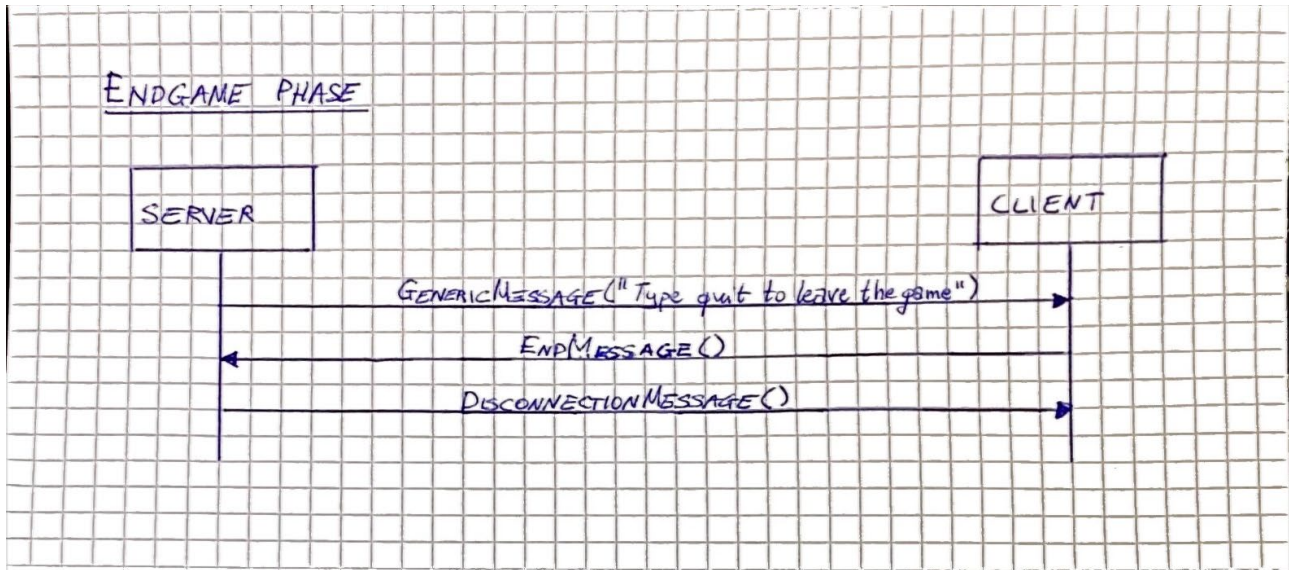 ENDGAME PHASE
SERVER
CLIENT
GENERICMESSAGE("Type quit to leave the game")
ENDMESSAGE()
DISCONNECTIONMESSAGE()